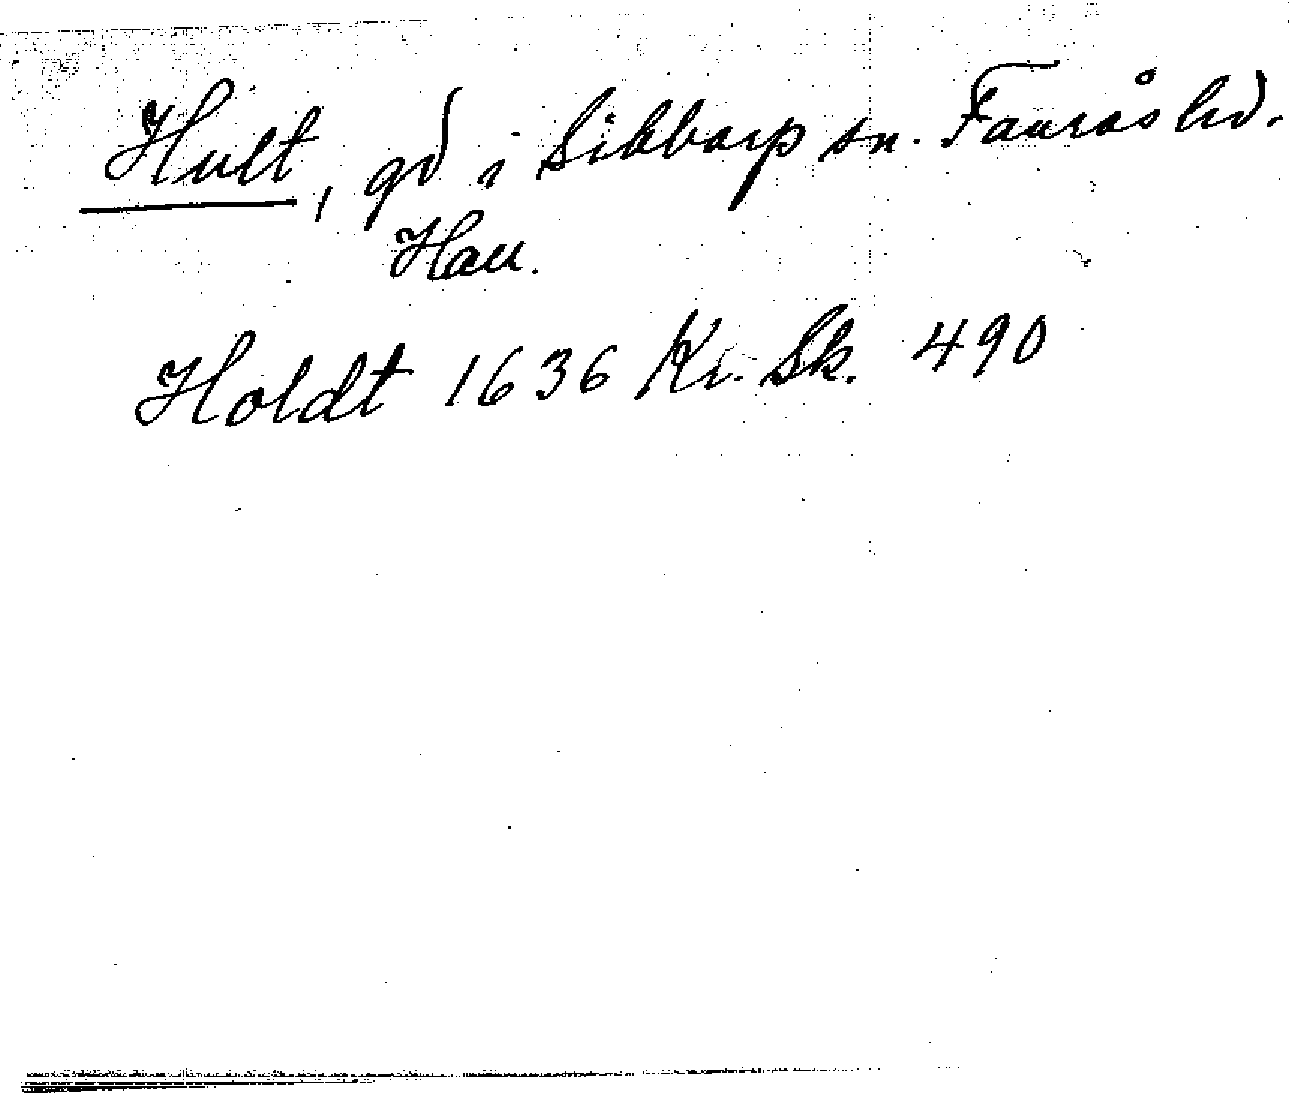 Hult, gd i Sibbarp sn. Faurås hd.
Hall.
Holdt 1636 Kr. Sk. 490